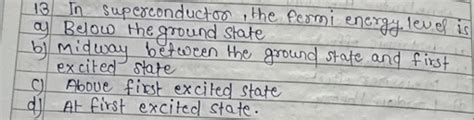 13 In superconductor, the fermi energy level is
a) Below the ground state
b) midway between the ground state and first
excited state
c) Above first excited state
d) At first excited state.